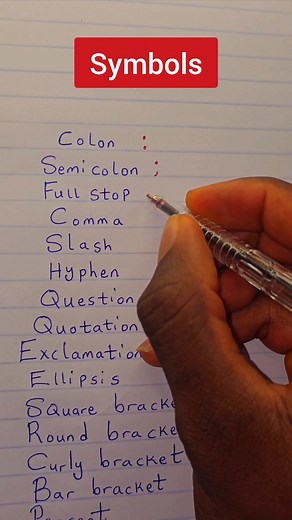 Symbols
Colon :
Semicolon ;
Full stop
Comma
Slash
Hyphen
Question
Quotation
Exclamation
Ellipsis
Square bracke
Round bracke
Curly bracket
Bar bracket